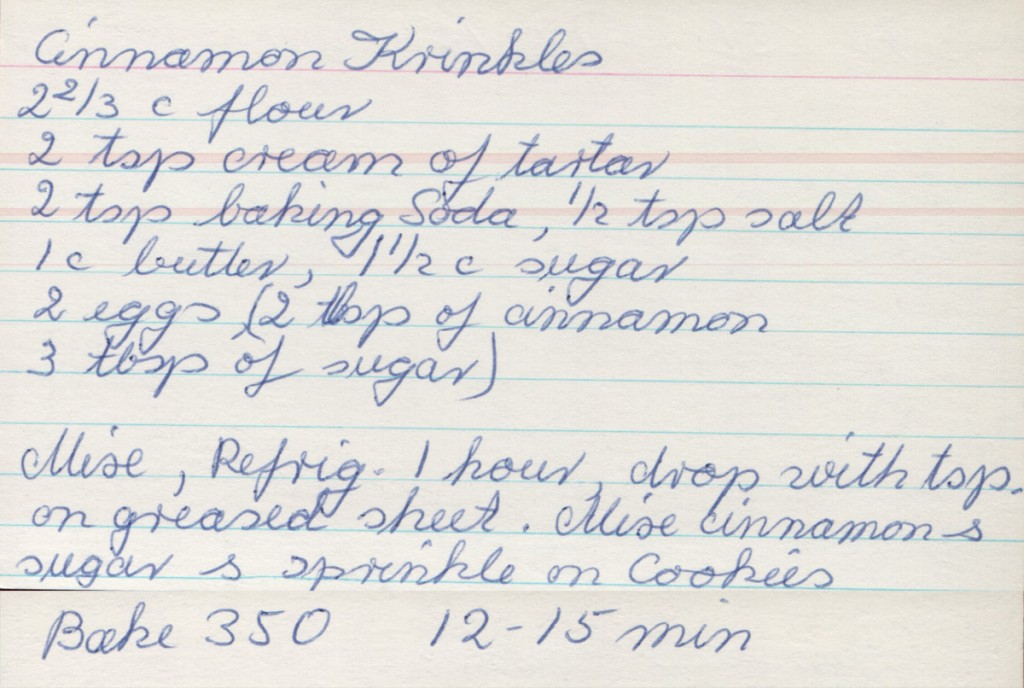 Cinnamon Krinkles
2 2/3 c flour
2 tsp cream of tartar
2 tsp baking Soda, 1/2 tsp salt
1 c butter, 1 1/2 c sugar
2 eggs (2 tbsp of cinnamon
3 tbsp of sugar)
Mixe, Refrig. 1 hour, drop with tsp.
on greased sheet. Mixe cinnamon &
sugar & sprinkle on Cookies
Bake 350 12-15 min